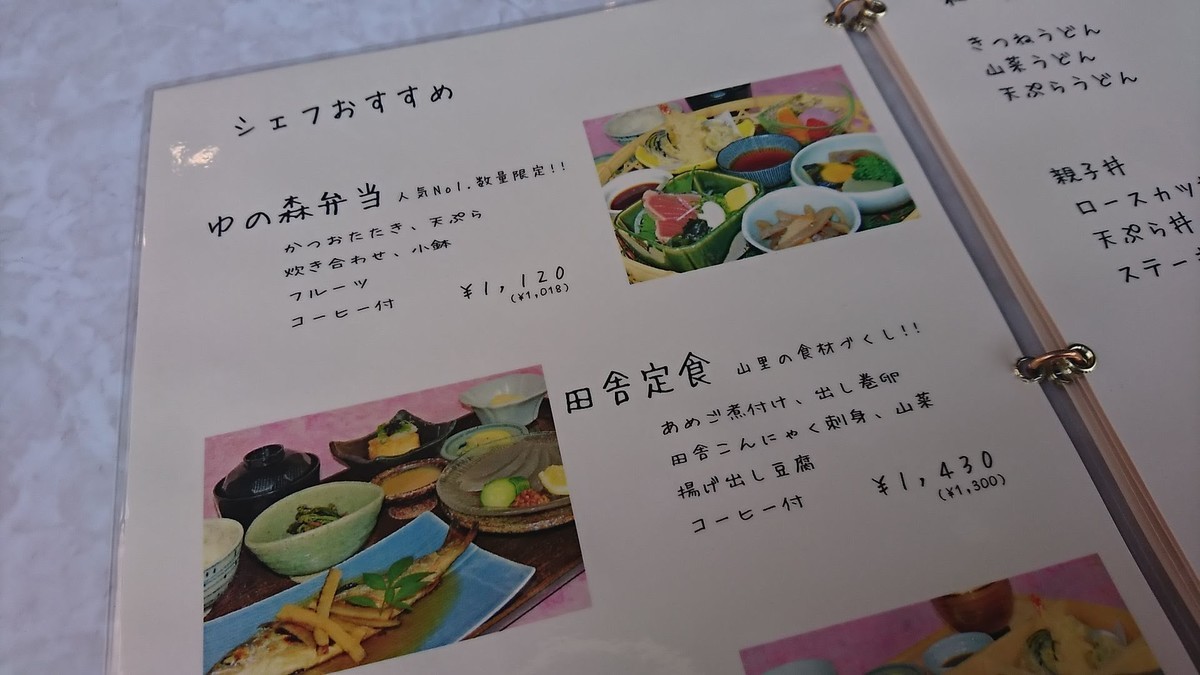 シェフおすすめ
ゆの森弁当 人気No1.数量限定!!
かつおたたき、天ぷら
炊き合わせ、小鉢
フルーツ
コーヒー付
¥1,120
(¥1,018)
田舎定食 山里の食材づくし!!
あめご煮付け、出し巻卵
田舎こんにゃく刺身、山菜
揚げ出し豆腐
コーヒー付
¥1,430
(¥1,300)
きつねうどん
山菜うどん
天ぷらうどん
親子丼
ロースカツ
天ぷら丼
ステー